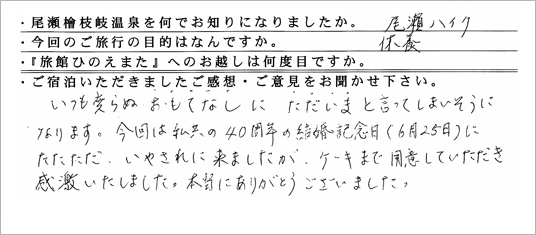 ・尾瀬檜枝岐温泉を何でお知りになりましたか。 尾瀬ハイク
・今回のご旅行の目的はなんですか。 休養
・『旅館ひのえまた』へのお越しは何度目ですか。
・ご宿泊いただきましたご感想・ご意見をお聞かせ下さい。
いつも変らぬ おもてなしに ただいま と言ってしまいそうに
なります。今回は私共の40周年の結婚記念日(6月25日)に
たたただ、いやされに来ましたが、ケーキまで用意していただき
感激いたしました。本当にありがとうございました。